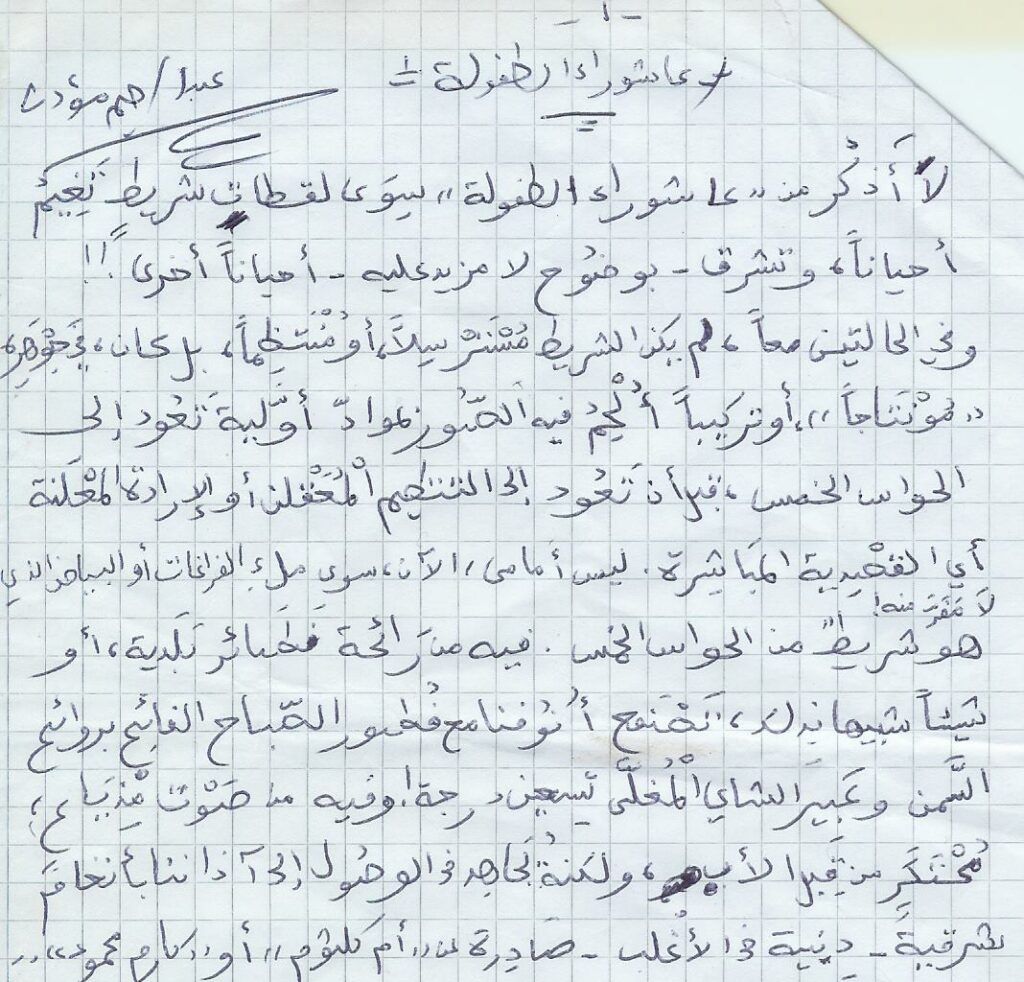 - 1 -
عاشوراء الطفولة
عبد الرحيم مؤدن
لاَ أَذكُر من "عاشوراء الطفولة" سِوَى لقطاتِ شريطٍ تَغِيمُ
أحياناً، وتشرق - بوضُوح لا مزيد عليه - أحياناً أخرى !..
وفي الحالتين معاً، لم يَكن الشريط مُسْتَرْسِلاً، أو مُنْتَظِماً، بل كان، في جَوْهَرِه،
"مُونْتَاجاً"، أو تركيباً أُلْحِمُ فيه الصُّور بموادّ أوَّلية تَعُود إلى
الحواس الخمس، قبل أن تَعُود إلى التنظيم الْمُعَقْلن أو الإرادة المُعْلَنة
أي القَصْدية المُبَاشرة. ليس أمامي، الآن، سوى مَلءِ الفراغات أو البياض الذي
لَا مَفَرَّ منه!
هو شريطٌ من الحواس الخمس. فيه من رَائحة فَطَائر بَلَدية، أو
شيئاً شبيها بذلك، تَصْفع أُنُوفنا مع فُطور الصّباح الفائح بروائح
السَّمن وعَبير الشاي الْمُغلَّى تسعين درجة! وفيه من صَوْت مِذْيَاع،
مُحْتَكَرٍ من قِبل الأب، ولكنهُ يُجاهد في الوصُول إلى آذاننا بأنغام
شرقيةٍ - دينية في الأغلب - صَادِرة عن "أم كلثوم" أو "كارم محمود"..